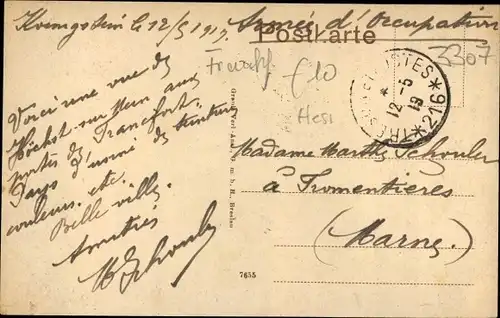 Koenigstein le 12/5 1919. Armée d'Occupation
Postkarte
3307
£10
Hess
TRESOR ET POSTES
* 216 *
12-5
19
Voici une vue de
Hochst sur Mein aux
portes de Francfort.
Pays d'usines de teintures
couleurs. etc.
Belle ville.
Amitiés
Madame Marthe
à Fromentières
(Marne.)
7655